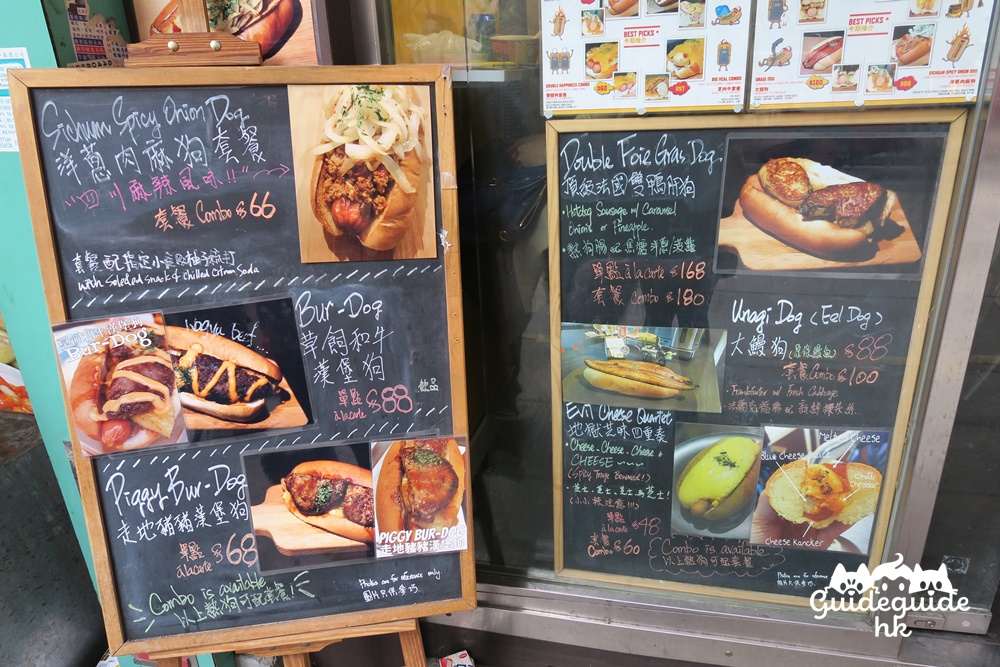 Sichuan Spicy Onion Dog
洋蔥肉麻狗套餐
"四川麻辣風味!!"
套餐 Combo $66
套餐配指定小食及柚子梳打
with Selected snack & chilled Citron Soda
Bur-Dog
草飼和牛
漢堡狗
單點
à la carte $88
Bur-Dog
Wagyu beef
Piggy Bur-Dog
走地豬豬漢堡狗
單點
à la carte $68
PIGGY BUR-DOG
走地豬豬漢堡狗
Combo is available
以上熱狗可配套餐!
Photos are for reference only
圖片只供參巧.
BEST PICKS
DOUBLE HAPPINESS COMBO
$97
BIG VEAL COMBO
$80
BEST PICKS
$100
$88
SICHUAN SPICY ONION DOG
Double Foie Gras Dog
頂級法國雙鴨肝狗
• Hotdog Sausage w/ Caramel
Onions or Pineapple.
單點 à la carte $168
套餐 Combo $180
Unagi Dog (Eel Dog)
大鰻狗
$88
套餐 Combo $100
• Frankfurter w/ Fresh Cabbage
Evil Cheese Quartet
地獄芝味四重奏
• Cheese, Cheese, Cheese &
CHEESE ~~~
(Spicy Tongue Beware!!)
• 芝士, 芝士, 芝士, 芝士!
單點
à la carte $48
套餐
Combo $60
Combo is available
以上熱狗可配套餐
Melted Cheese
Blue Cheese Sauce
Chilli Cheddar
Cheese Kancker
Photos are for reference
圖片只供參巧.
Guideguide
hk